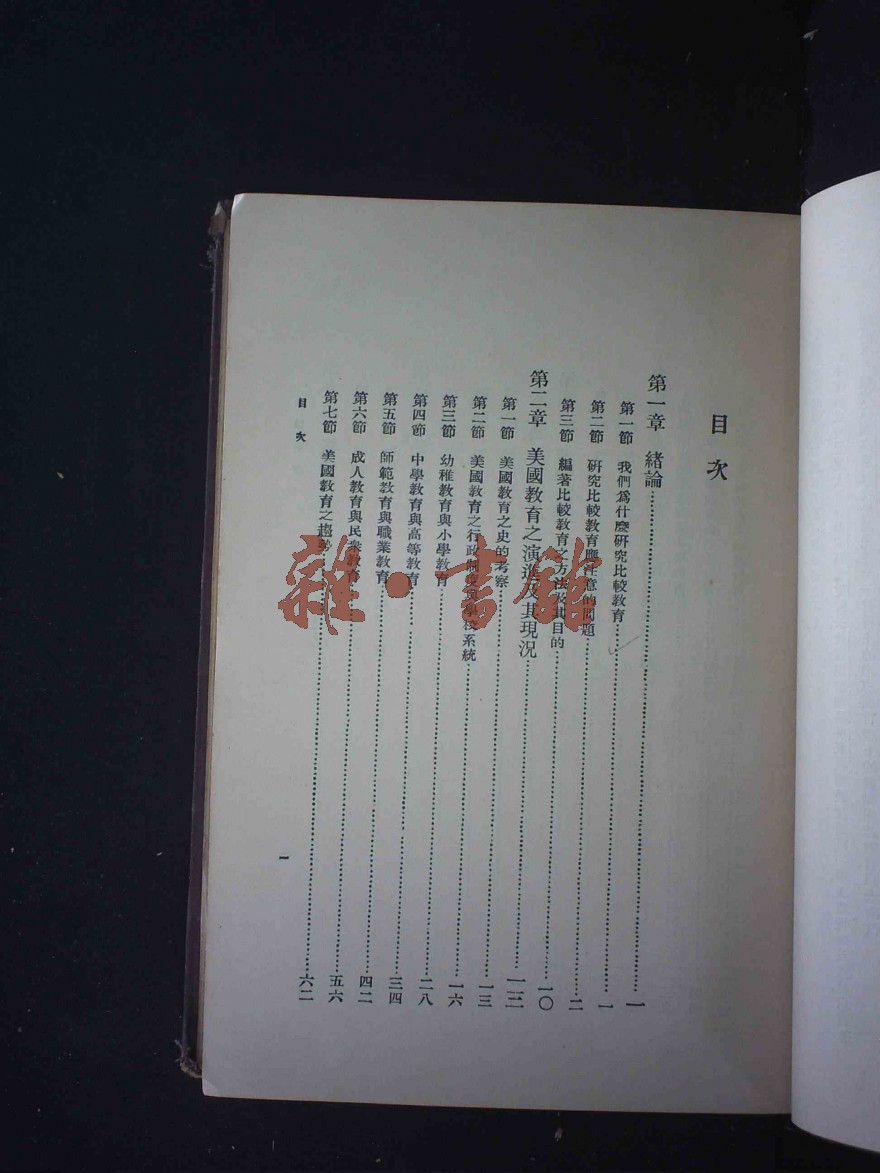 目次
第一章 緒論……一
第一節 我們爲什麽研究比較教育……一
第二節 研究比較教育應注意的問題……二
第三節 編著比較教育之方法及其目的……一〇
第二章 美國教育之演進及其現況……一二
第一節 美國教育之史的考察……一三
第二節 美國教育之行政制度 學校系統……一六
第三節 幼稚教育與小學教育……二八
第四節 中學教育與高等教育……三四
第五節 師範教育與職業教育……四二
第六節 成人教育與民衆教育……五六
第七節 美國教育之趨勢……六二
目次
一
雜·書館